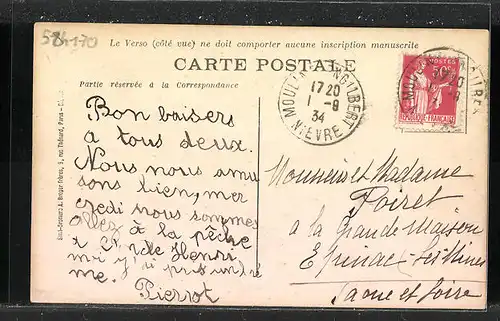 584170
Le Verso (côté vue) ne doit comporter aucune inscription manuscrite
CARTE POSTALE
Partie réservée à la Correspondance
Bon baisers
a tous deux.
Nous nous amu
sons bien, mer
credi nous sommes
allez à la pêche
Henri
me.
Pierrot
MOULINS ENGILBERT
17 20
1 - 8
34
NIEVRE
50c
REPUBLIQUE FRANÇAISE
Monsieur et Madame
Poiret
a la Grande Maison
Epinac-les-Mines
Saone et Loire